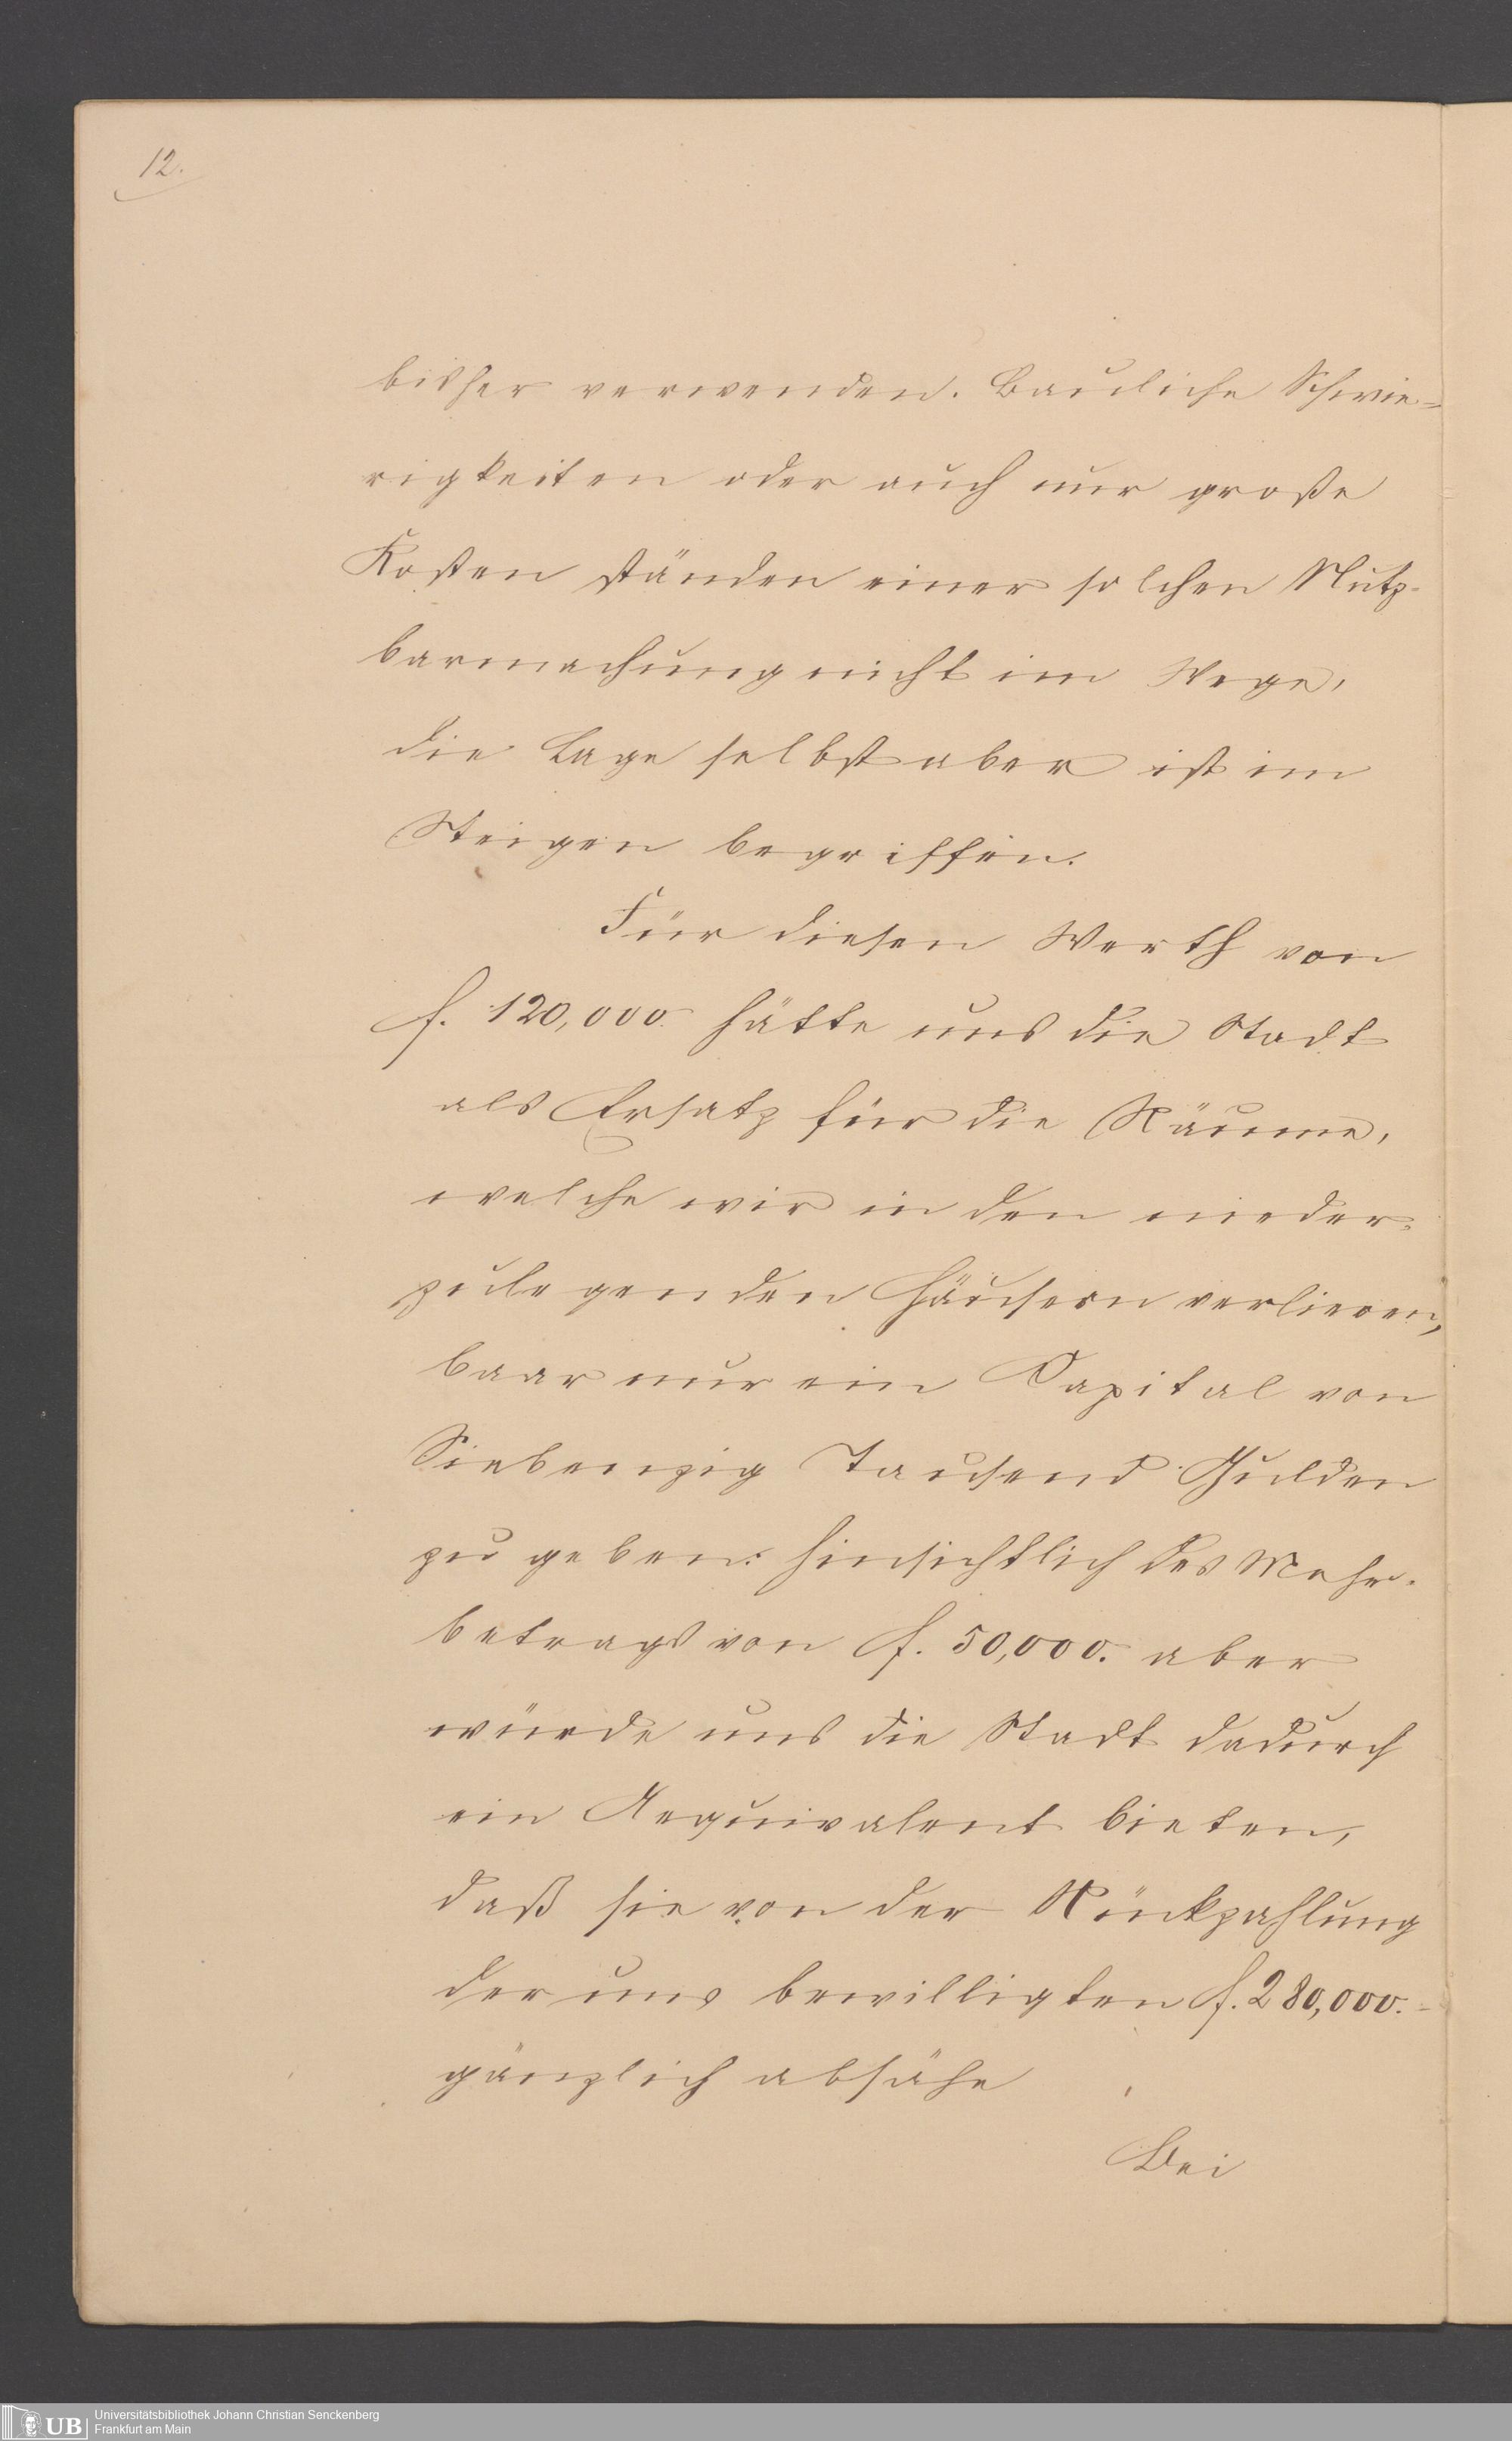 12.
bisher verwenden. Bauliche Schwie=
rigkeiten oder auch nur große
Kosten ständen einer solchen Nutz-
barmachung nicht im Wege,
die Lage selbst aber ist im
Steigen begriffen.
Für diesen Werth von
f. 120,000. hätte uns die Stadt
als Ersatz für die Räume,
welche wir in den nieder-
zulegenden Häusern verlieren,
baar nur ein Capital von
Siebenzig Tausend Gulden
zu geben: hinsichtlich des Mehr-
betrags von f. 50,000. aber
würde uns die Stadt dadurch
ein Aequivalent bieten,
daß sie von der Rückzahlung
der uns bewilligten f. 280,000.-
gänzlich absähe
Bei
UB
Universitätsbibliothek Johann Christian Senckenberg
Frankfurt am Main